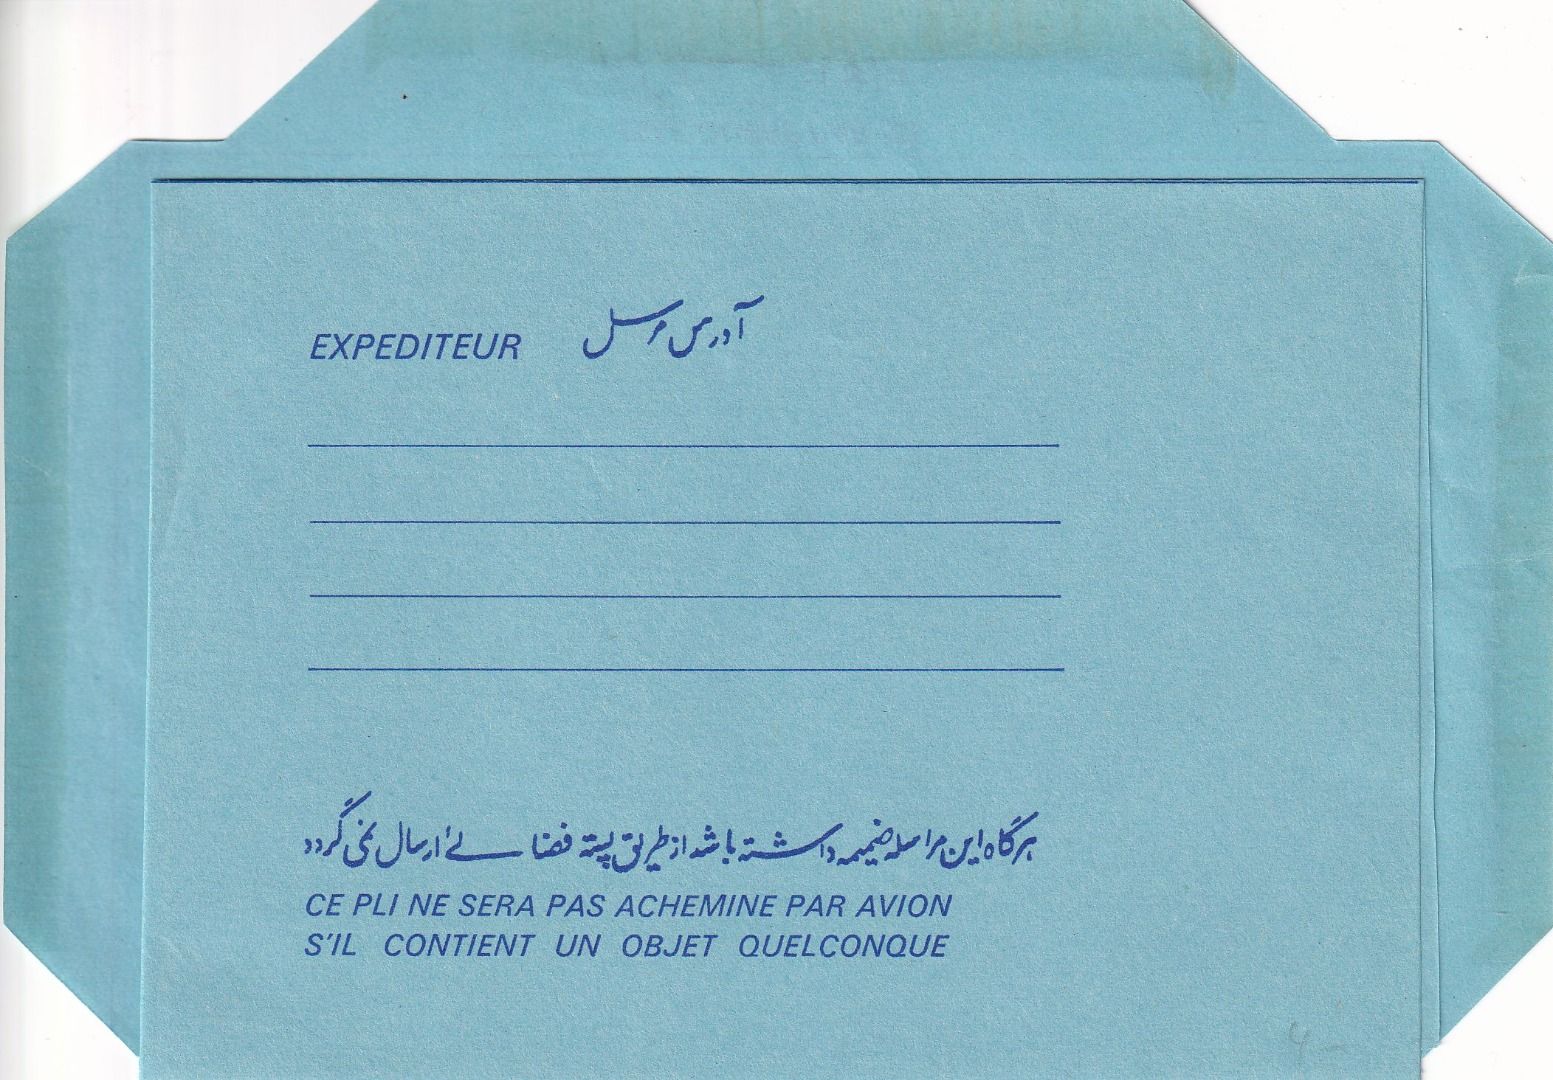 EXPEDITEUR آدرس مرسل
هرگاه این مراسله ضمیمه داشته باشد از طریق پسته فضائے ارسال نمی گردد
CE PLI NE SERA PAS ACHEMINE PAR AVION
S'IL CONTIENT UN OBJET QUELCONQUE